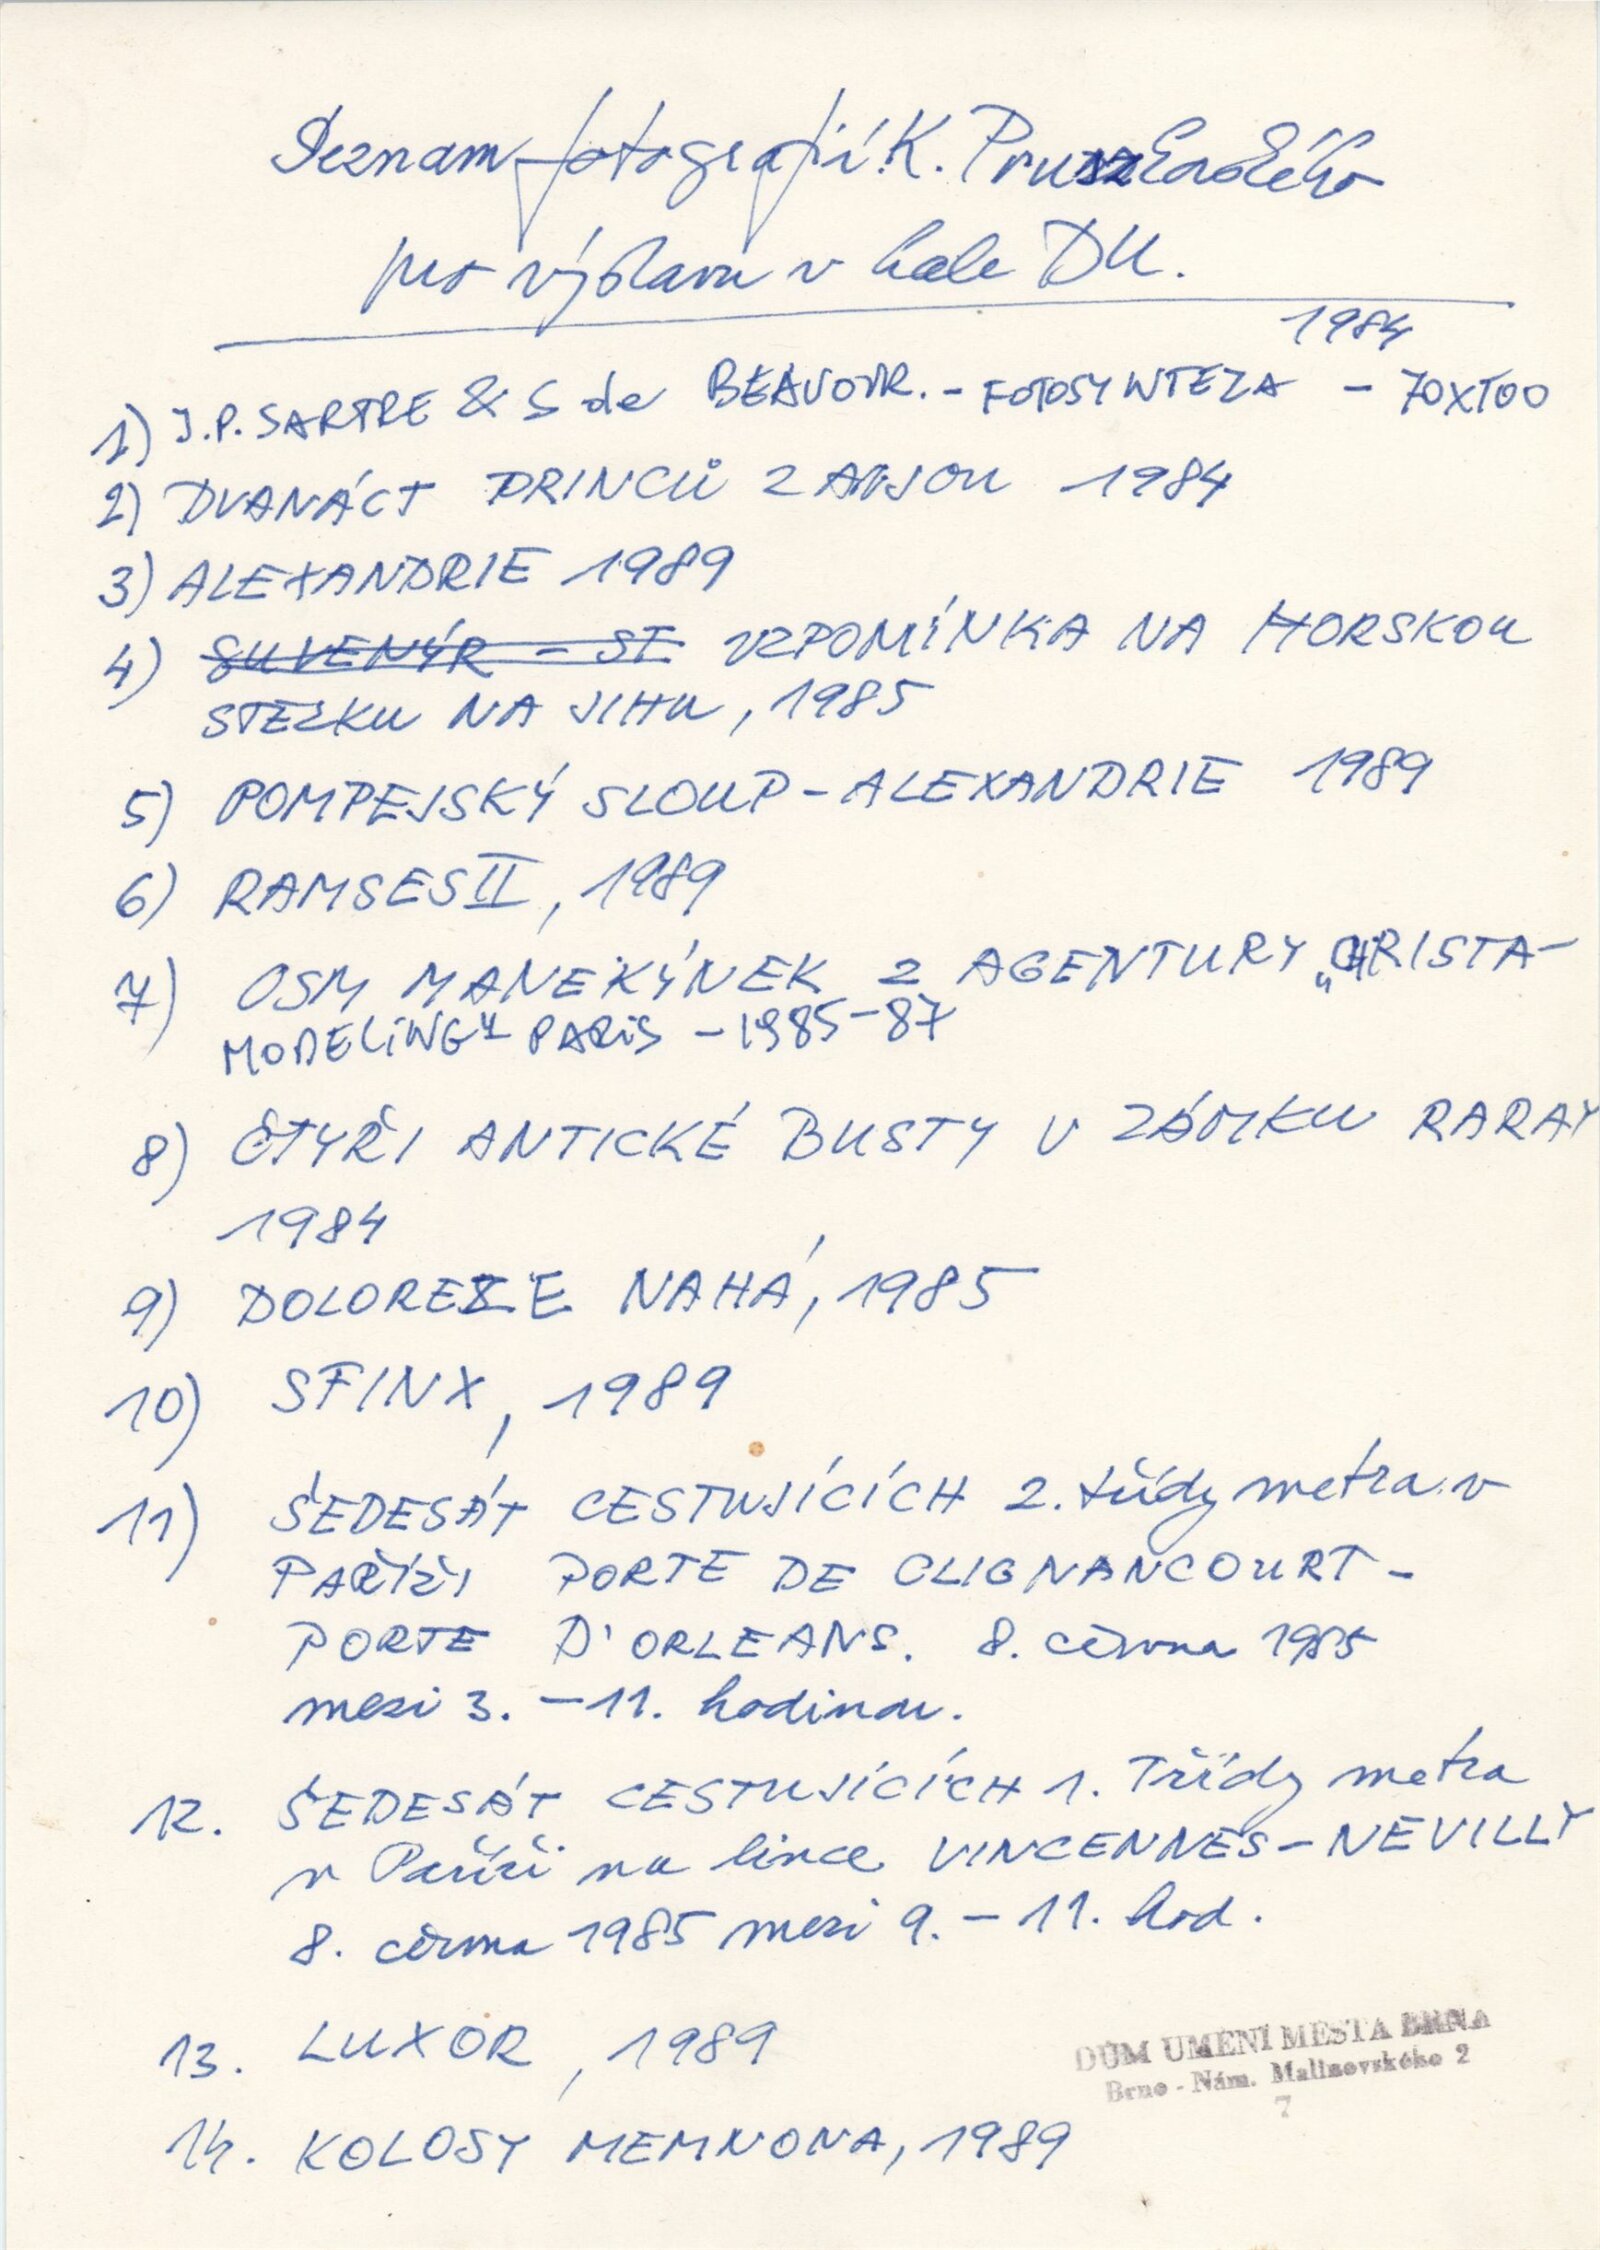 Seznam fotografií K. Pruszkowského
pro výstavu v hale DU.
1984
1) J.P. SARTRE & S de BEAUVOIR. - FOTOSYNTEZA - 70X100
2) DVANÁCT PRINCŮ Z ANJOU 1984
3) ALEXANDRIE 1989
4) SUVENÝR - ST VZPOMÍNKA NA HORSKOU
STEZKU NA JIHU, 1985
5) POMPEJSKÝ SLOUP - ALEXANDRIE 1989
6) RAMSES II, 1989
7) OSM MANEKÝNEK Z AGENTURY „CHRISTA-
MODELING" PARIS - 1985-87
8) ČTYŘI ANTICKÉ BUSTY V ZÁMKU RARAY
1984
9) NAHÁ, 1985
10) SFINX, 1989
11) ŠEDESÁT CESTUJÍCÍCH 2. třídy metra v
PAŘÍŽI PORTE DE CLIGNANCOURT -
PORTE D'ORLEANS. 8. června 1985
mezi 3. - 11. hodinou.
12. ŠEDESÁT CESTUJÍCÍCH 1. Třídy metra
v Paříži na lince VINCENNES - NEVILLY
8. června 1985 mezi 9. - 11. hod.
13. LUXOR, 1989
14. KOLOSY MEMNONA, 1989
DŮM UMĚNÍ MĚSTA BRNA
Brno - Nám. Malinovského 2
7